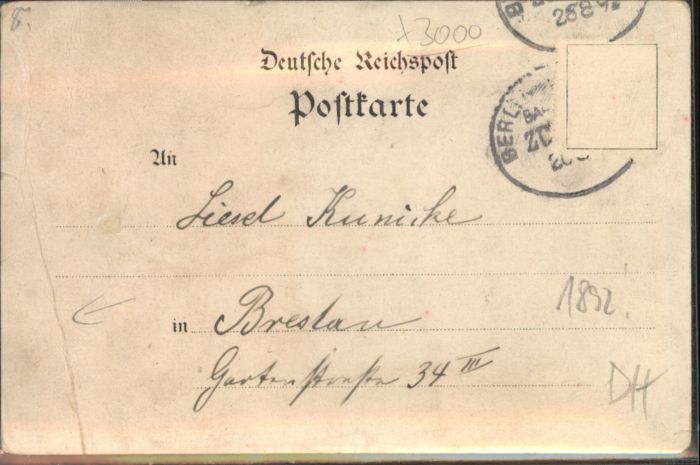 8.
x3000
26 8 92
Deutsche Reichspost
Postkarte
BERLIN
BA
ZU
26
An
Liesel Kunicke
1892
in Breslau
Gartenstraße 34 III
DH